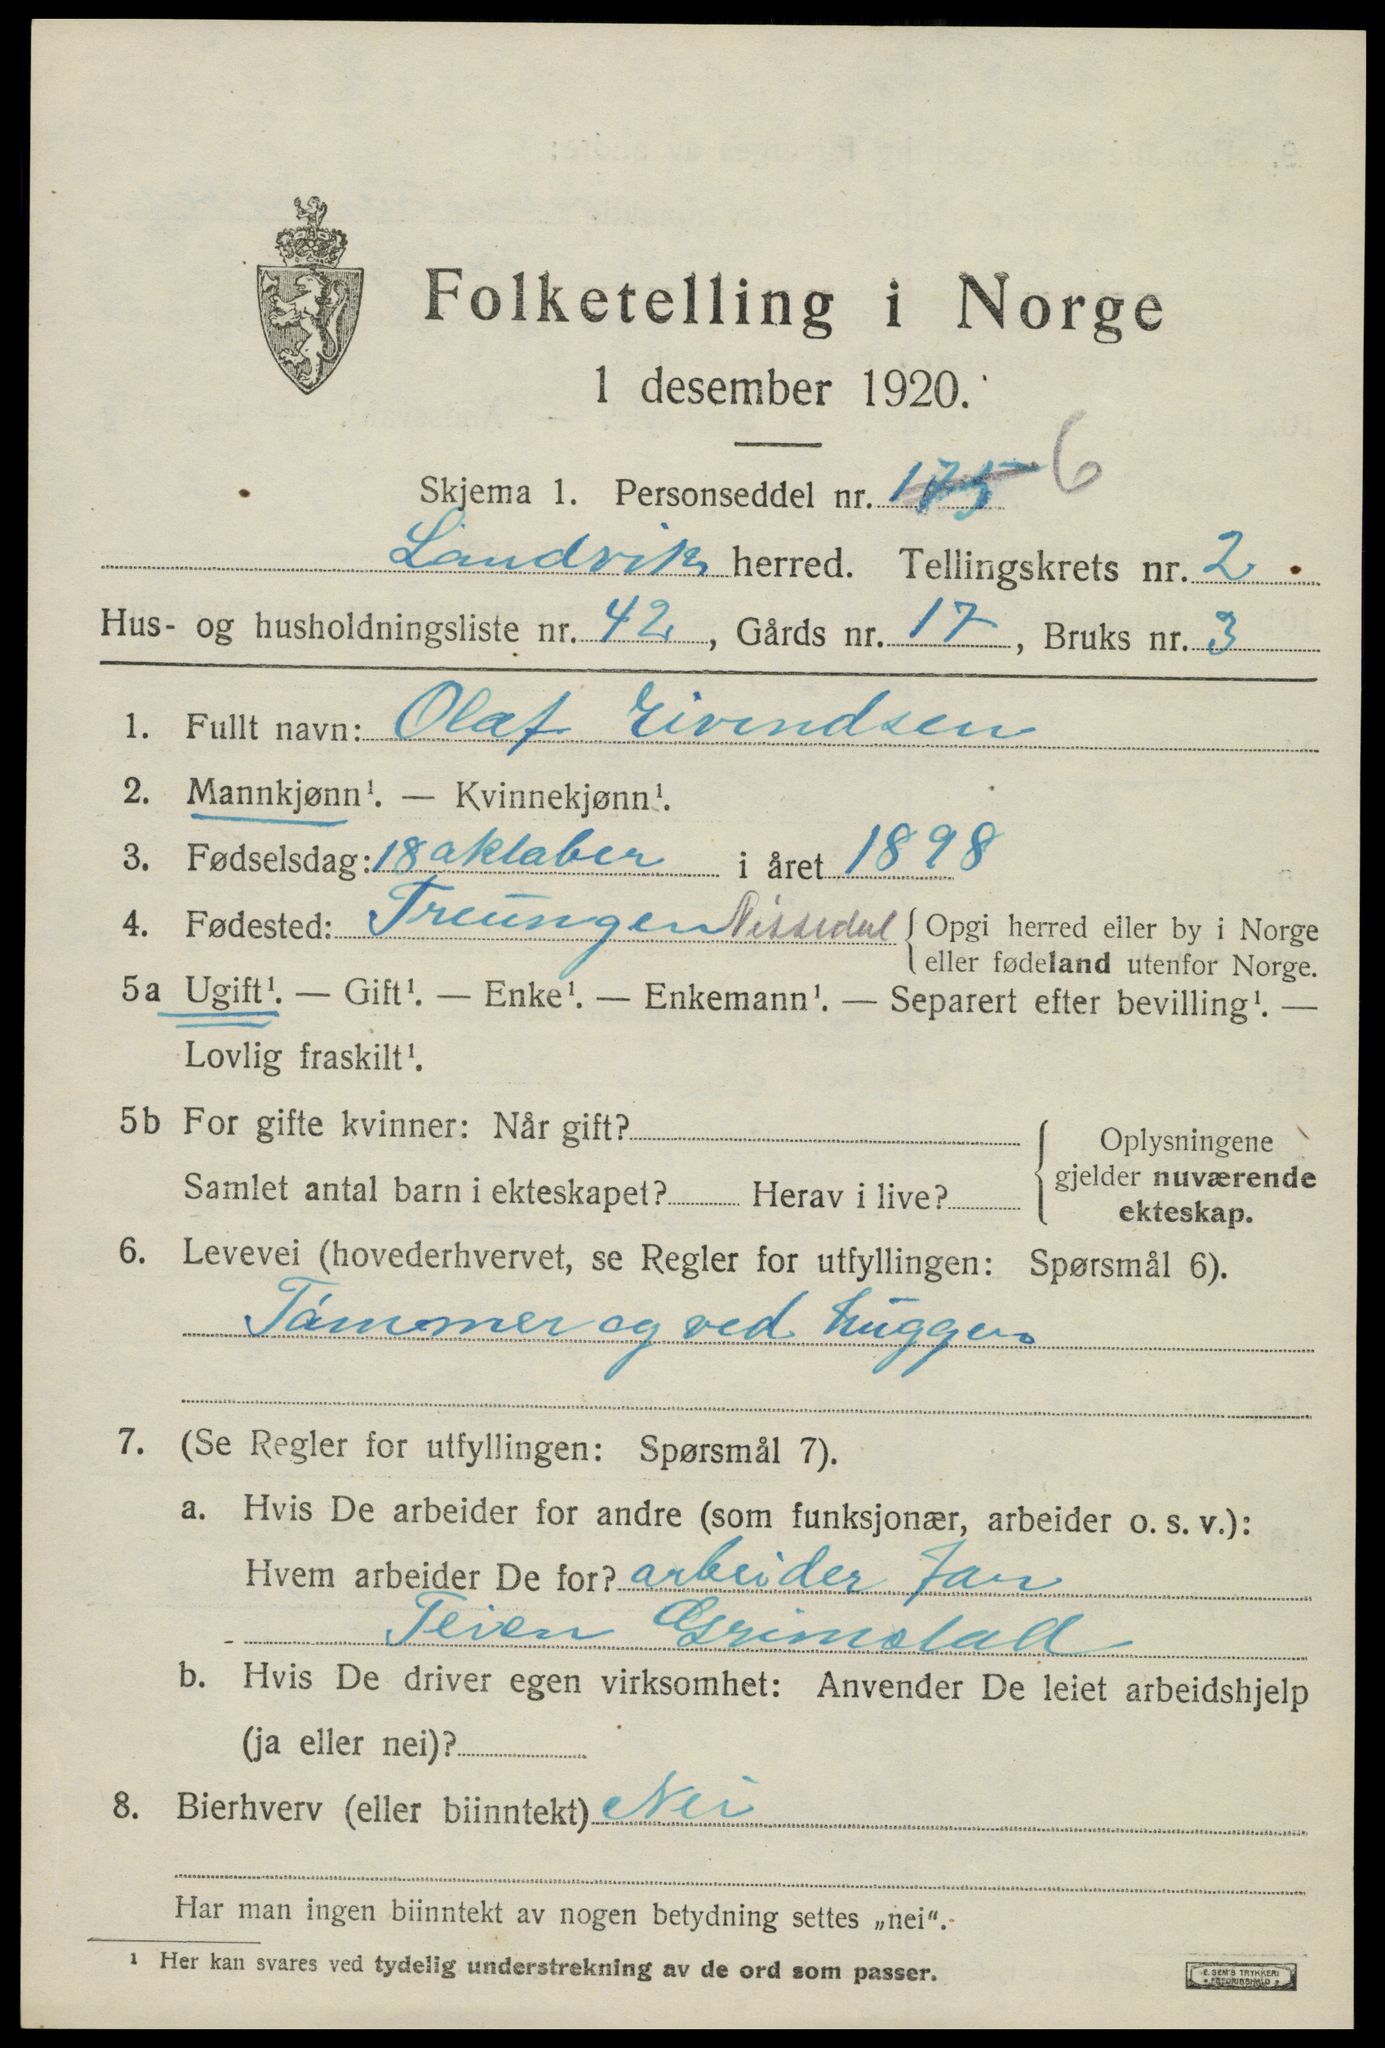 Folketelling i Norge
1 desember 1920.
Skjema 1. Personseddel nr. 175 6
Landvik herred. Tellingskrets nr. 2
Hus- og husholdningsliste nr. 42, Gårds nr. 17, Bruks nr. 3
1. Fullt navn: Olaf Eivendsen
2. Mannkjønn¹. — Kvinnekjønn¹.
3. Fødselsdag: 18 oktober i året 1898
4. Fødested: Treungen Nissedal { Opgi herred eller by i Norge
eller fødeland utenfor Norge.
5a Ugift¹. — Gift¹. — Enke¹. — Enkemann¹. — Separert efter bevilling¹. —
Lovlig fraskilt¹.
5b For gifte kvinner: Når gift?
Samlet antal barn i ekteskapet? Herav i live?
{ Oplysningene
gjelder nuværende
ekteskap.
6. Levevei (hovederhvervet, se Regler for utfyllingen: Spørsmål 6).
Tømmer og ved hugger
7. (Se Regler for utfyllingen: Spørsmål 7).
a. Hvis De arbeider for andre (som funksjonær, arbeider o. s. v.):
Hvem arbeider De for? arbeider for
Teien Grimstad
b. Hvis De driver egen virksomhet: Anvender De leiet arbeidshjelp
(ja eller nei)?
8. Bierhverv (eller biinntekt) Nei
Har man ingen biinntekt av nogen betydning settes „nei“.
¹ Her kan svares ved tydelig understrekning av de ord som passer.
E. SEM'S TRYKKERI
FREDRIKSHALD